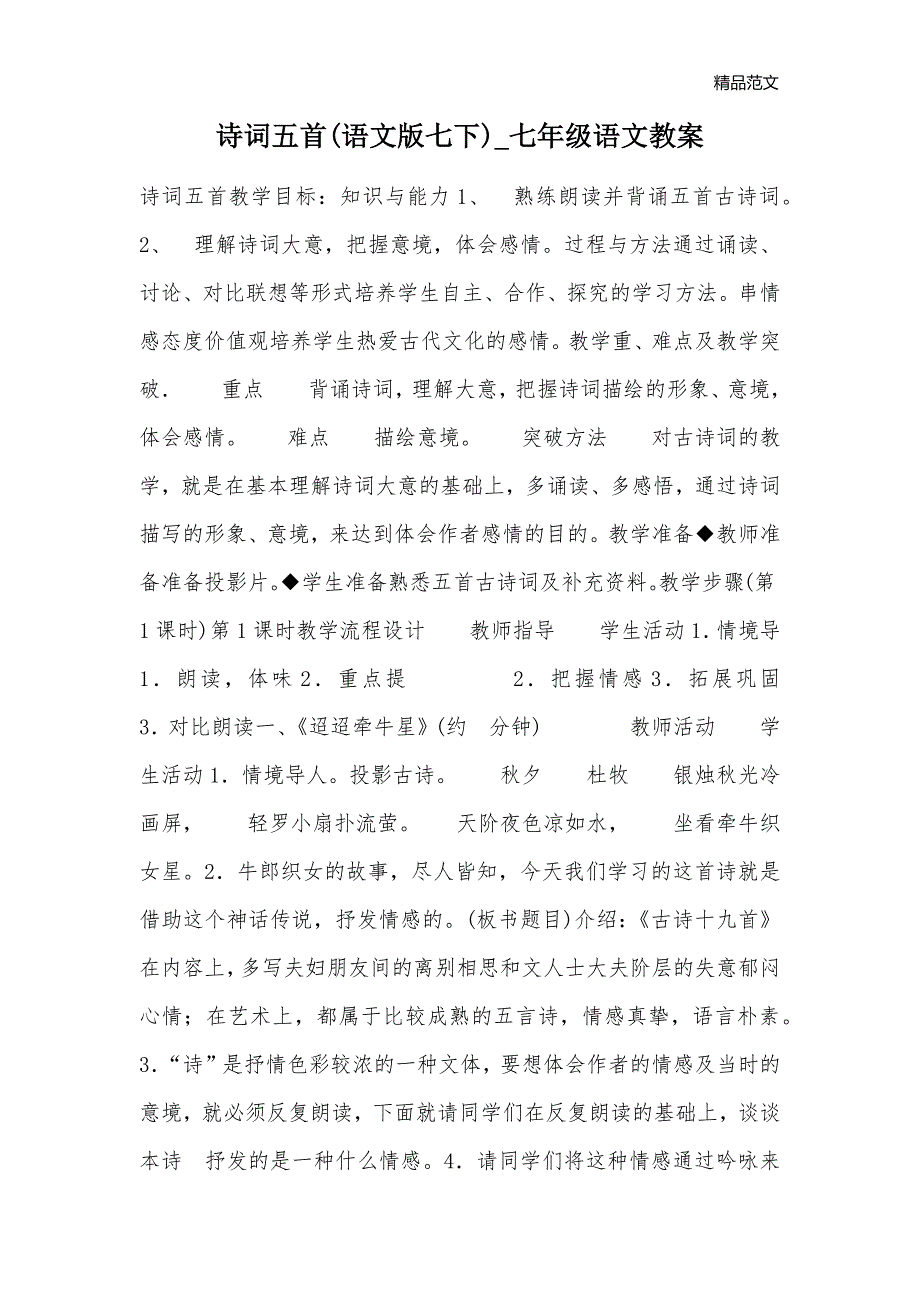 精品范文
诗词五首(语文版七下)_七年级语文教案
诗词五首教学目标：知识与能力 1、　熟练朗读并背诵五首古诗词。
2、　理解诗词大意，把握意境，体会感情。过程与方法通过诵读、
讨论、对比联想等形式培养学生自主、合作、探究的学习方法。串情
感态度价值观培养学生热爱古代文化的感情。教学重、难点及教学突
破．　　重点　　背诵诗词，理解大意，把握诗词描绘的形象、意境，
体会感情。　　难点　　描绘意境。　　突破方法　　对古诗词的教
学，就是在基本理解诗词大意的基础上，多诵读、多感悟，通过诗词
描写的形象、意境，来达到体会作者感情的目的。教学准备◆教师准
备准备投影片。◆学生准备熟悉五首古诗词及补充资料。教学步骤(第
1 课时)第 1 课时教学流程设计　　教师指导　　学生活动 1．情境导
1．朗读，体味 2．重点提　　　　　2．把握情感 3．拓展巩固
3．对比朗读一、《迢迢牵牛星》(约　分钟)　　　　教师活动　　学
生活动 1．情境导人。投影古诗。　　秋夕　　杜牧　　银烛秋光冷
画屏，　　轻罗小扇扑流萤。　　天阶夜色凉如水，　　坐看牵牛织
女星。2．牛郎织女的故事，尽人皆知，今天我们学习的这首诗就是
借助这个神话传说，抒发情感的。(板书题目)介绍：《古诗十九首》
在内容上，多写夫妇朋友间的离别相思和文人士大夫阶层的失意郁闷
心情；在艺术上，都属于比较成熟的五言诗，情感真挚，语言朴素。
3．“诗”是抒情色彩较浓的一种文体，要想体会作者的情感及当时的
意境，就必须反复朗读，下面就请同学们在反复朗读的基础上，谈谈
本诗　抒发的是一种什么情感。4．请同学们将这种情感通过吟咏来